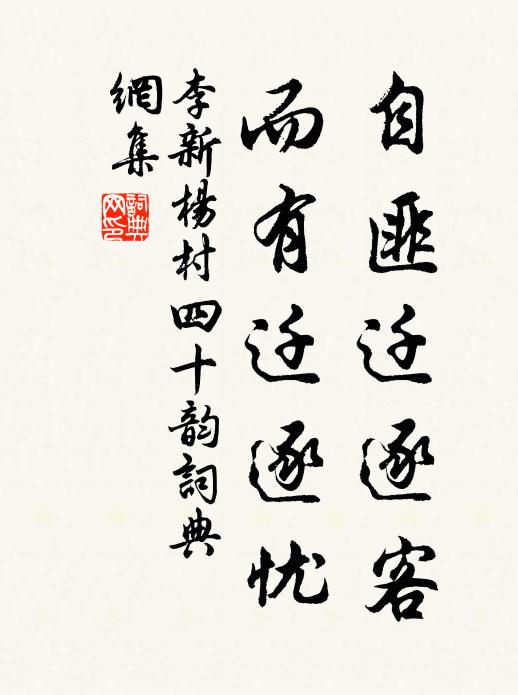 自匪迁逐客
而有迁逐忧
李新杨村四十韵詞典
網集
詞典
网印